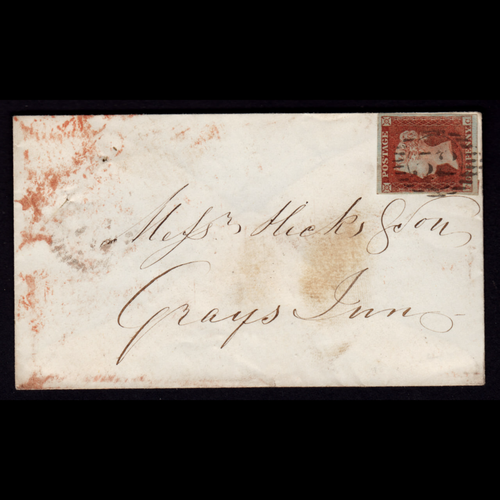 Messrs Hicks & Son
Grays Inn
POSTAGE